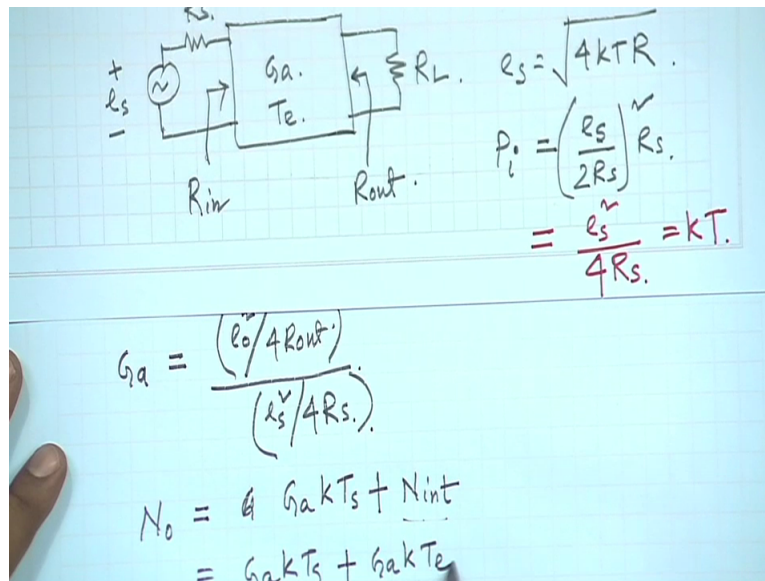 Rs.
+
es
−
Ga.
Te.
RL.
Rin
Rout.
es = √4kTR.
Pi = (es/2Rs)² Rs.
= es²/4Rs. = kT.
Ga = (eo²/4Rout.)/(es²/4Rs.).
No = GakTs + Nint
= GakTs + GakTe